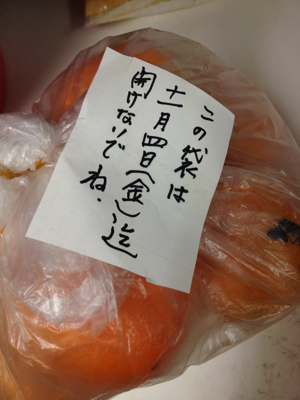 この袋は
十一月四日(金)迄
開けないでね.